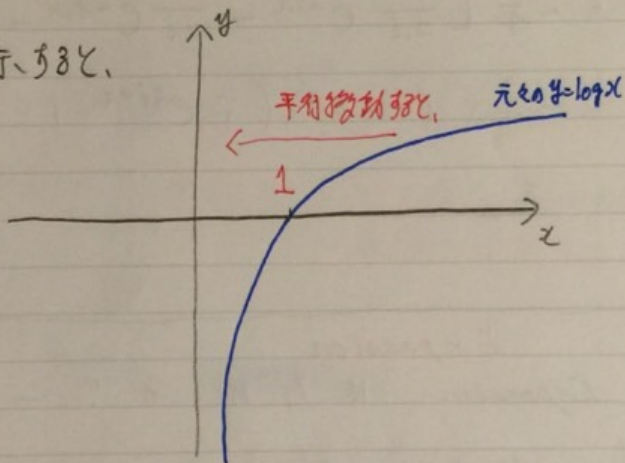 y
示、すると、
平行移動すると、
元々の y=logx
1
x